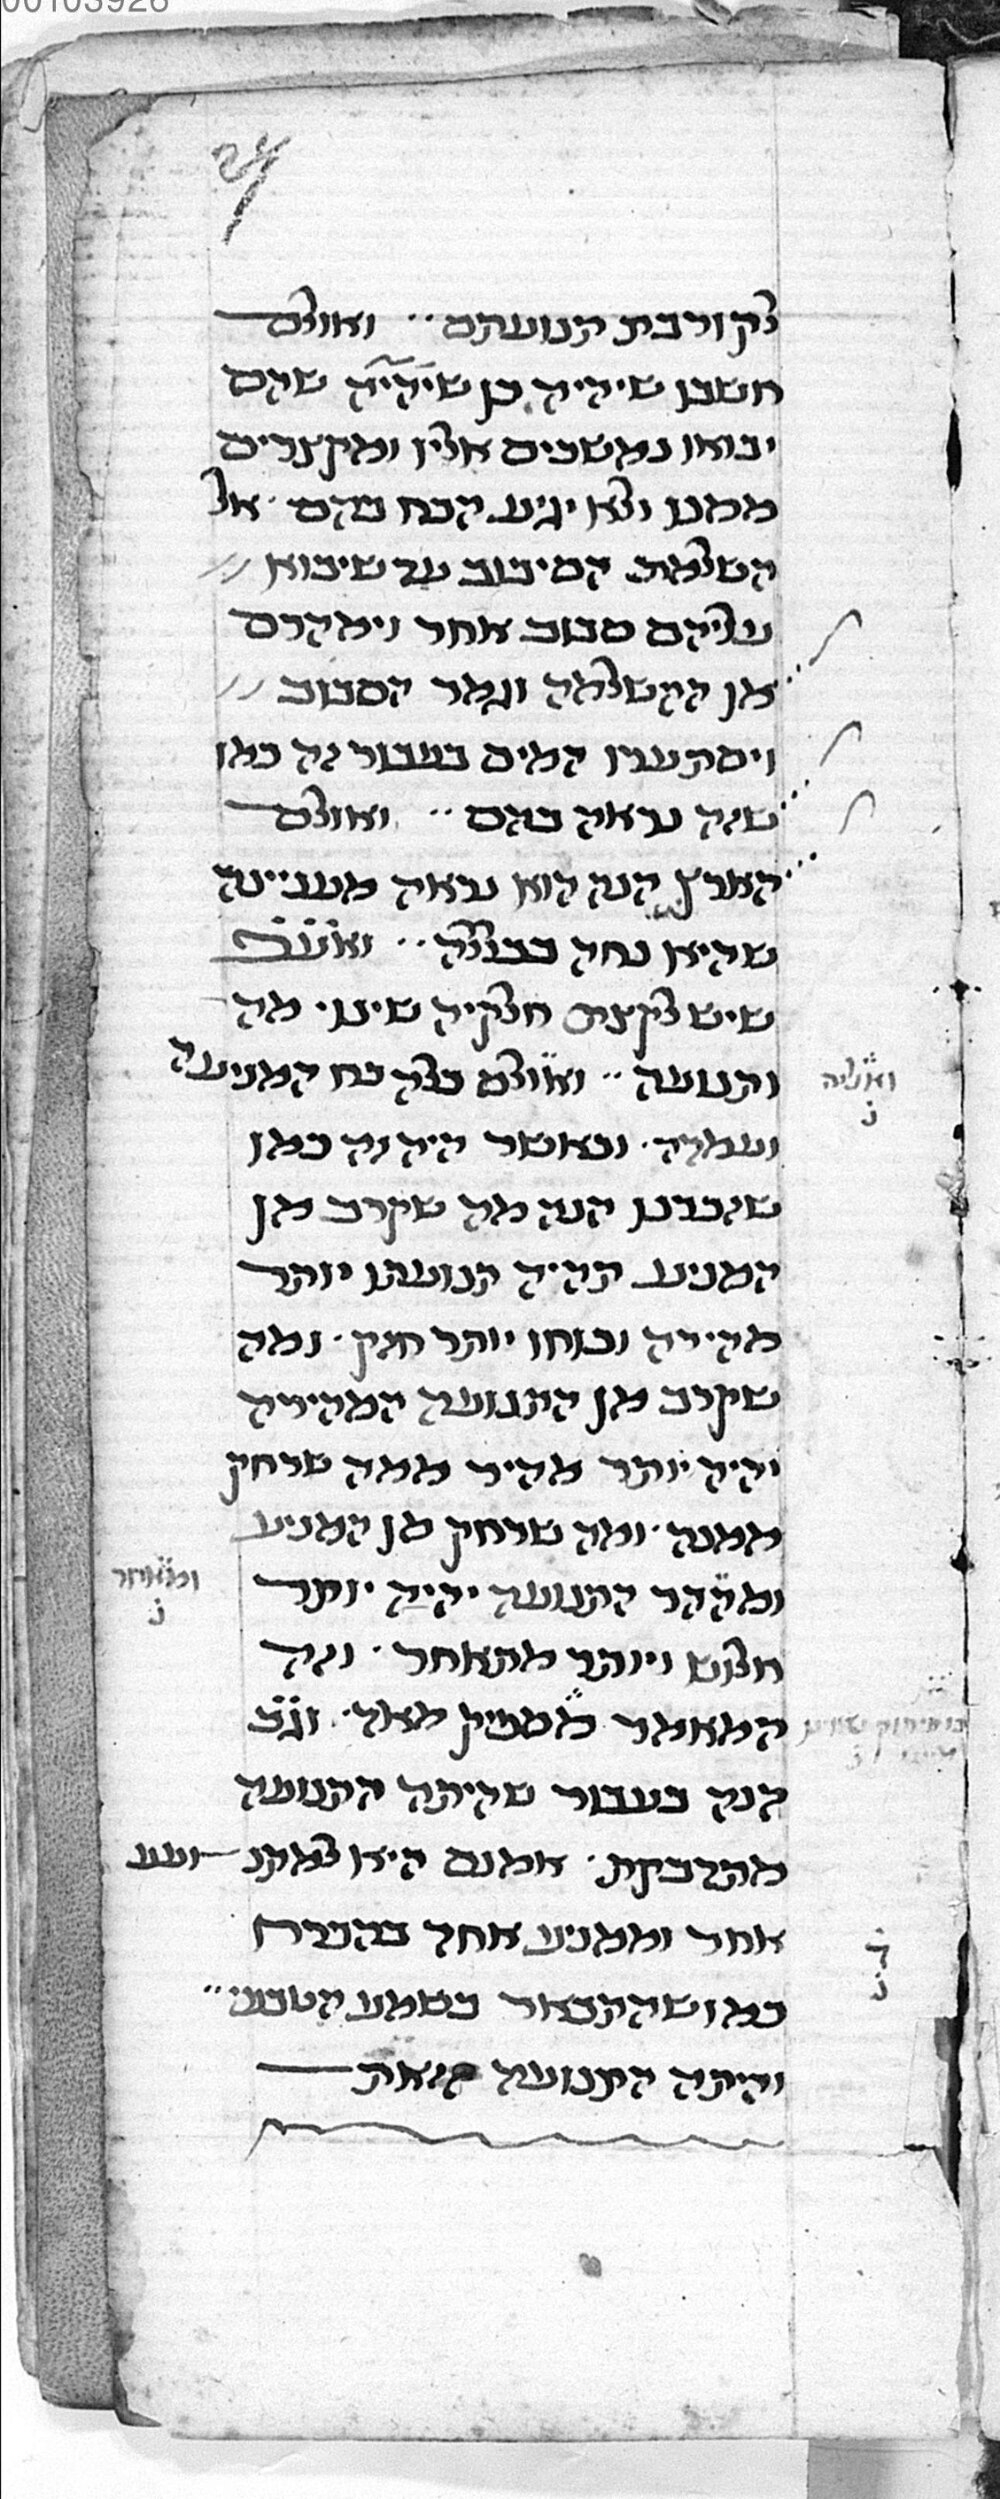 לקורבת תנועתם ·· ואולם
חשבו שיהיה כן שיהיה שהם
יבואו נמשכים אליו ומקצרים
ממנו ולא יגיע הכח מהם · אל
השלמת הסיבוב עד שיבוא
עליהם סבוב אחר וימהרם
מן ההשלמה וגמר הסבוב
ויסתערו המים בעבור זה כמו
שזה נראה בהם ·· ואולם
הארץ הנה הוא נראה מעניינה
שהיא נחה בכללה ·· ואע״פ
שיש לקצת חלקיה שינוי מה
ותנועה ·· ואולם בלה כח המניעה
ועמדה · וכאשר היה זה כמו
שזכרנו הנה מה שקרב מן
המניע תהיה תנועתו יותר
מהירה וכוחו יותר חזק · ומה
שקרב מן התנועה המהירה
יהיה יותר מהיר ממה שרחק
ממנה · ומה שרחק מן המניע
ומהדר התנועה יהיה יותר
חלוש ויותר מתאחר · וזה
המאמר מספיק מאד · וג״כ
הנה בעבור שהיתה התנועה
מתדבקת · אמנם היא למתנועע
אחד וממניע אחד בהכרח
כמו שהתבאר בשמע הטבעי ··
והיתה התנועה הזאת
ומאוחר
נ